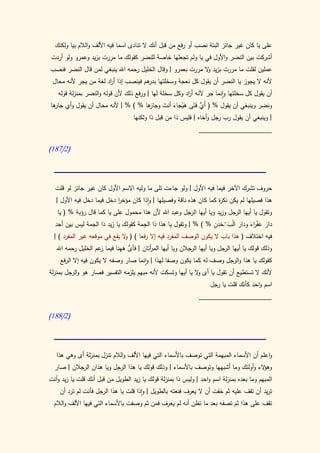 على يا كان غير جائز البتة نصب أو رفع من قبل أنك لا تنادى اسما فيه الألف واللام بيا ولكنك
أشركت بين النضر والأول في يا ولم تجعلها خاصة للنضر كقولك ما مررت بزيد وعمرو ولو أردت
عملين لقلت ما مررت بزيد ولا مررت بعمرو | وقال الخليل رحمه الله ينبغي لمن قال النضر فنصب
لأنه لا يجوز يا النضر أن يقول كل نعجة وسخلتها بدرهم فينصب إذا أراد لغة من يجر لأنه محال
أن يقول كل سخلتها وإنما جر لأنه أراد وكل سخلة لها | ورفع ذلك لأن قوله والنضر بمنزلة قوله
ونضر وينبغي أن يقول % ( أيُّ فتى هَيْجاءَ أنت وجارَها ) % | لأنه محال أن يقول وأي جارها
| وينبغي أن يقول رب رجل وأخاه | فليس ذا من قبل ذا ولكنها
(187/2)
حروف تشرك الآخر فيما فيه الأول | ولو جاءت تلى ما وليه الاسم الأول كان غير جائز لو قلت
هذا فصيلها لم يكن نكرة كما كان هذه ناقة وفصيلها | وإذا كان مؤخرا دخل فيما دخل فيه الأول |
وتقول يا أيها الرجل وزيد ويا أيها الرجل وعبد الله لأن هذا محمول على يا كما قال رؤبة % ( يا
دار عفراء ودار الْبَخْدَنِ % ) % | وتقول يا هذا ذا الجمة كقولك يا زيد ذا الجمة ليس بين أحد
فيه اختلاف ( هذا باب لا يكون الوصف المفرد فيه إلا رفعا ) ( ولا يقع في موقعه غير المفرد ) |
وذلك قولك يا أيها الرجل ويا أيها الرجلان ويا أيها المرأتان | فأىّ ههنا فيما زعم الخليل رحمه الله
كقولك يا هذا والرجل وصف له كما يكون وصفا لهذا | وإنما صار وصفه لا يكون فيه إلا الرفع
لأنك لا تستطيع أن تقول يا أى ولا يا أيها وتسكت لأنه مبهم يلزمه التفسير فصار هو والرجل بمنزلة
اسم واحد كأنك قلت يا رجل
(188/2)
واعلم أن الأسماء المبهمة التي توصف بالأسماء التي فيها الألف واللام تنزل بمنزلة أى وهي هذا
وهؤلاء وأولئك وما أشبهها وتوصف بالأسماء | وذلك قولك يا هذا الرجل ويا هذان الرجلان | صار
المبهم وما بعده بمنزلة اسم واحد | وليس ذا بمنزلة قولك يا زيد الطويل من قبل أنك قلت يا زيد وأنت
تريد أن تقف عليه ثم خفت أن لا يعرف فنعته بالطويل | وإذا قلت يا هذا الرجل فأنت لم ترد أن
تقف على هذا ثم تصفه بعد ما تظن أنه لم يعرف فمن ثم وصفت بالأسماء التي فيها الألف واللام